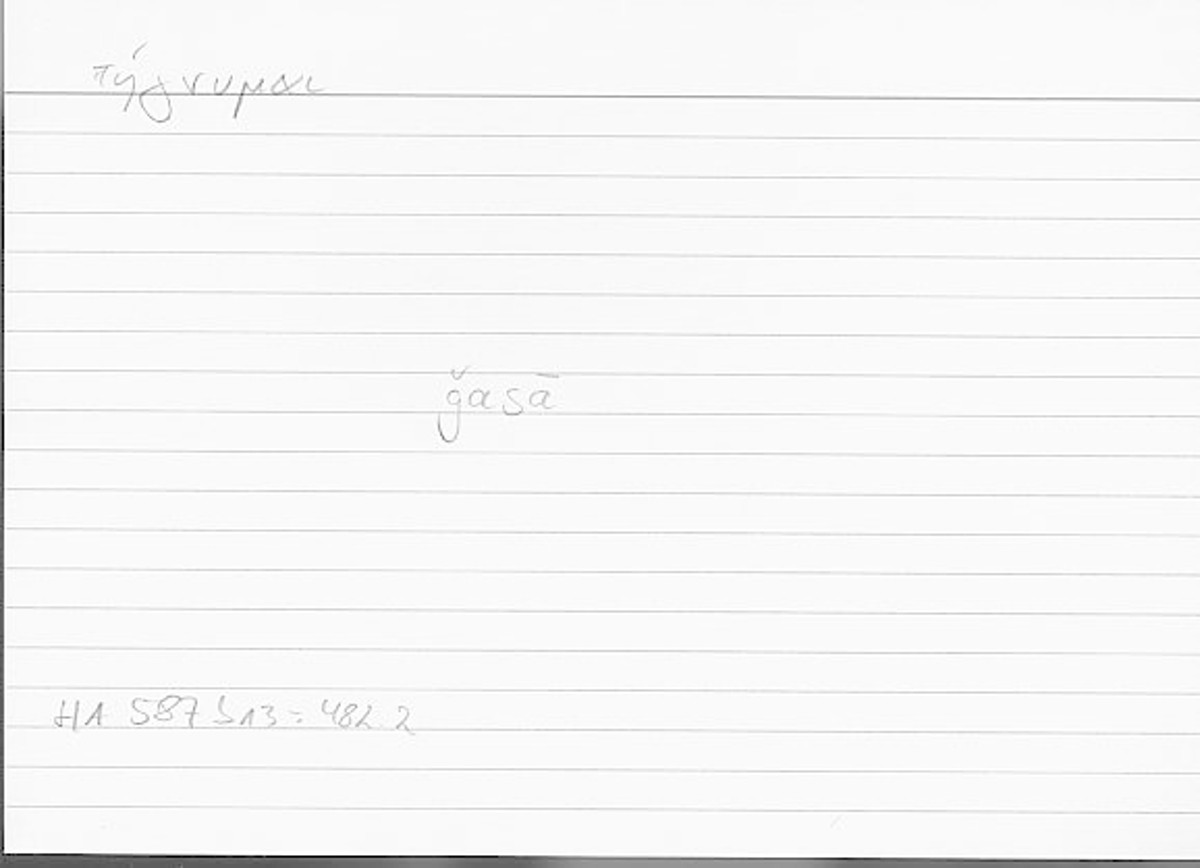 πήγνυμαι
ǧasā
HA 587 b13 = 482.2